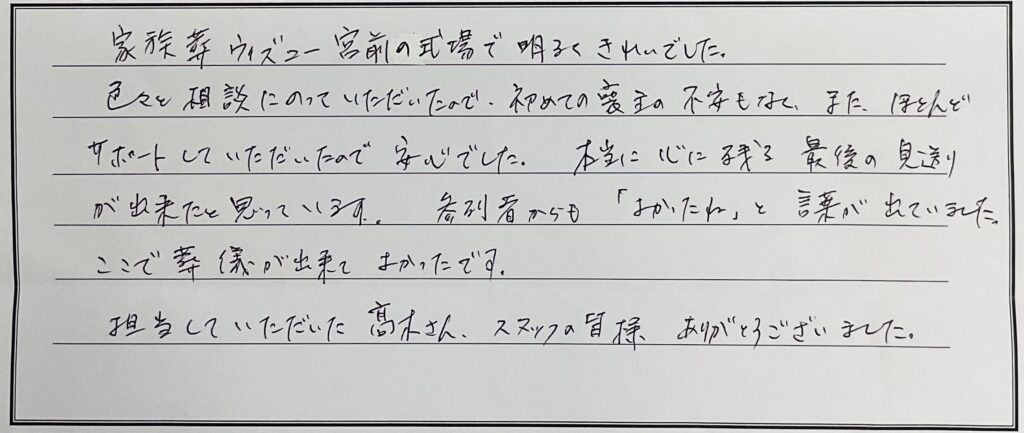 家族葬ウィズユー宮前の式場で明るくきれいでした。
色々と相談にのっていただいたので、初めての喪主の不安もなく、また、ほとんど
サポートしていただいたので安心でした。本当に心に残る最後の見送り
が出来たと思っています。参列者からも「よかったね」と言葉が出ていました。
ここで葬儀が出来てよかったです。
担当していただいた髙木さん、スタッフの皆様ありがとうございました。